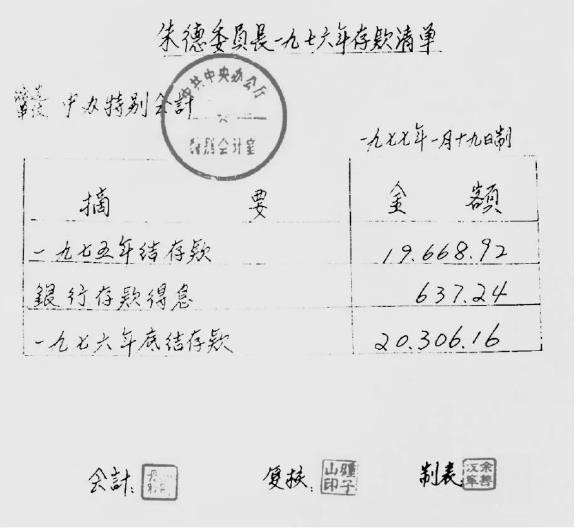 朱德委員長一九七六年存款清单
中办特别会計
中共中央办公厅
特别会计室
一九七七年一月十九日制
摘 要 金 額
一九七五年结存款 19.668.92
銀行存款得息 637.24
一九七六年底结存款 20.306.16
会計: 复核: 制表